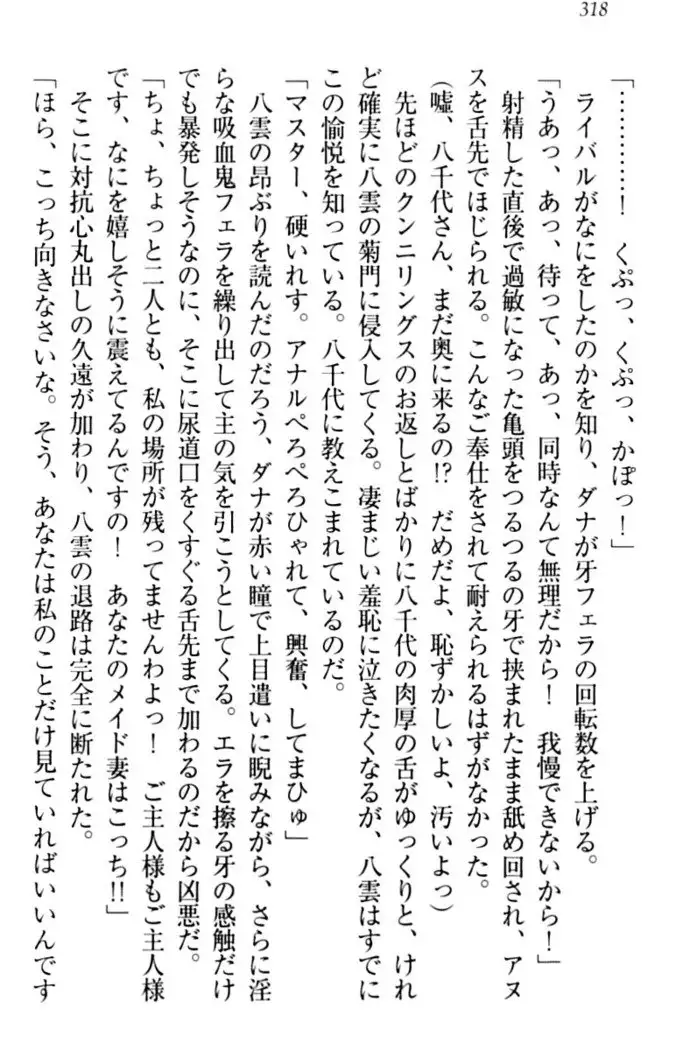 318
「…………！　くぷっ、くぷっ、かぽっ！」
ライバルがなにをしたのかを知り、ダナが牙フェラの回転数を上げる。
「うあっ、あっ、待って、あっ、同時なんて無理だから！　我慢できないから！」
射精した直後で過敏になった亀頭をつるつるの牙で挟まれたまま舐め回され、アヌ
スを舌先でほじられる。こんなご奉仕をされて耐えられるはずがなかった。
（嘘、八千代さん、まだ奥に来るの!?　だめだよ、恥ずかしいよ、汚いよっ）
先ほどのクンニリングスのお返しとばかりに八千代の肉厚の舌がゆっくりと、けれ
ど確実に八雲の菊門に侵入してくる。凄まじい羞恥に泣きたくなるが、八雲はすでに
この愉悦を知っている。八千代に教えこまれているのだ。
「マスター、硬いれす。アナルぺろぺろひゃれて、興奮、してまひゅ」
八雲の昂ぶりを読んだのだろう、ダナが赤い瞳で上目遣いに睨みながら、さらに淫
らな吸血鬼フェラを繰り出して主の気を引こうとしてくる。エラを擦る牙の感触だけ
でも暴発しそうなのに、そこに尿道口をくすぐる舌先まで加わるのだから凶悪だ。
「ちょ、ちょっと二人とも、私の場所が残ってませんわよっ！　ご主人様もご主人様
です、なにを嬉しそうに震えてるんですの！　あなたのメイド妻はこっち!!」
そこに対抗心丸出しの久遠が加わり、八雲の退路は完全に断たれた。
「ほら、こっち向きなさいな。そう、あなたは私のことだけ見ていればいいんです